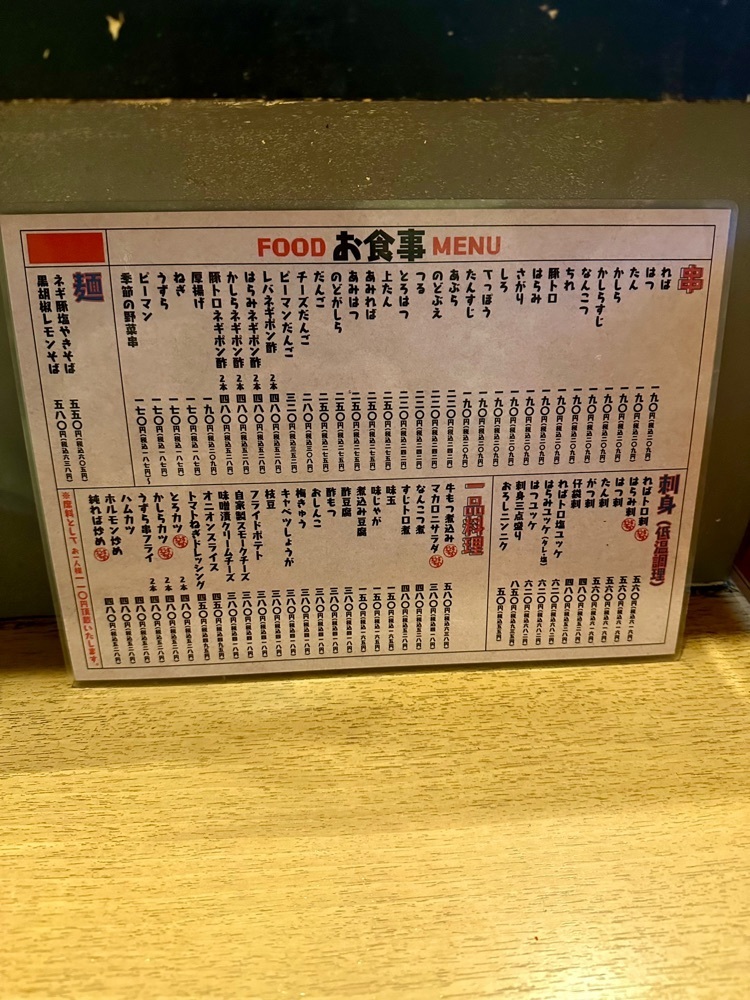 FOOD お食事 MENU
串
れば 一九〇円(税込二〇九円)
はつ 一九〇円(税込二〇九円)
たん 一九〇円(税込二〇九円)
かしら 一九〇円(税込二〇九円)
かしらすじ 一九〇円(税込二〇九円)
なんこつ 一九〇円(税込二〇九円)
ちれ 一九〇円(税込二〇九円)
豚トロ 一九〇円(税込二〇九円)
はらみ 一九〇円(税込二〇九円)
さがり 一九〇円(税込二〇九円)
しろ 一九〇円(税込二〇九円)
てっぽう 一九〇円(税込二〇九円)
たんすじ 一九〇円(税込二〇九円)
あぶら 二二〇円(税込二四二円)
のどぶえ 二二〇円(税込二四二円)
つる 二二〇円(税込二四二円)
とろはつ 二二〇円(税込二四二円)
上たん 二五〇円(税込二七五円)
あみれば 二五〇円(税込二七五円)
あみはつ 二五〇円(税込二七五円)
のどがしら 二五〇円(税込二七五円)
だんご 二五〇円(税込二七五円)
チーズだんご 二八〇円(税込三〇八円)
ピーマンだんご 三二〇円(税込三五二円)
レバネギポン酢 2本 四八〇円(税込五二八円)
はらみネギポン酢 2本 四八〇円(税込五二八円)
かしらネギポン酢 2本 四八〇円(税込五二八円)
豚トロネギポン酢 2本 四八〇円(税込五二八円)
厚揚げ 一九〇円(税込二〇九円)
ねぎ 一七〇円(税込一八七円)
うずら 一七〇円(税込一八七円)
ピーマン 一七〇円(税込一八七円)
季節の野菜串 一七〇円(税込一八七円)〜
麺
ネギ豚塩やきそば 五五〇円(税込六〇五円)
黒胡椒レモンそば 五八〇円(税込六三八円)
刺身(低温調理)
ればトロ刺 五六〇円(税込六一六円)
はらみ刺 五六〇円(税込六一六円)
はつ刺 五六〇円(税込六一六円)
たん刺 五六〇円(税込六一六円)
がつ刺 四八〇円(税込五二八円)
仔袋刺 四八〇円(税込五二八円)
ればトロ塩ユッケ 六二〇円(税込六八二円)
はらみユッケ(タレ・塩) 六二〇円(税込六八二円)
はつユッケ 六二〇円(税込六八二円)
刺身三点盛り 八五〇円(税込九三五円)
おろしニンニク 五〇円(税込五五円)
一品料理
牛もつ煮込み 五八〇円(税込六三八円)
マカロニサラダ 三八〇円(税込四一八円)
なんこつ煮 四八〇円(税込五二八円)
すじトロ煮 四八〇円(税込五二八円)
味玉 一五〇円(税込一六五円)
味じゃが 一五〇円(税込一六五円)
煮込み豆腐 一五〇円(税込一六五円)
酢豆腐 三八〇円(税込四一八円)
酢もつ 三八〇円(税込四一八円)
おしんこ 三八〇円(税込四一八円)
梅きゅう 三八〇円(税込四一八円)
キャベツしょうが 三八〇円(税込四一八円)
枝豆 三八〇円(税込四一八円)
フライドポテト 三八〇円(税込四一八円)
自家製スモークチーズ 三八〇円(税込四一八円)
味噌漬クリームチーズ 三八〇円(税込四一八円)
オニオンスライス 四五〇円(税込四九五円)
トマトねぎドレッシング 四五〇円(税込四九五円)
とろカツ 2本 四八〇円(税込五二八円)
かしらカツ 2本 四八〇円(税込五二八円)
うずら串フライ 2本 四八〇円(税込五二八円)
ハムカツ 四八〇円(税込五二八円)
ホルモン炒め 四八〇円(税込五二八円)
純れば炒め 四八〇円(税込五二八円)
※席料としてお一人様一一〇円頂戴いたします。